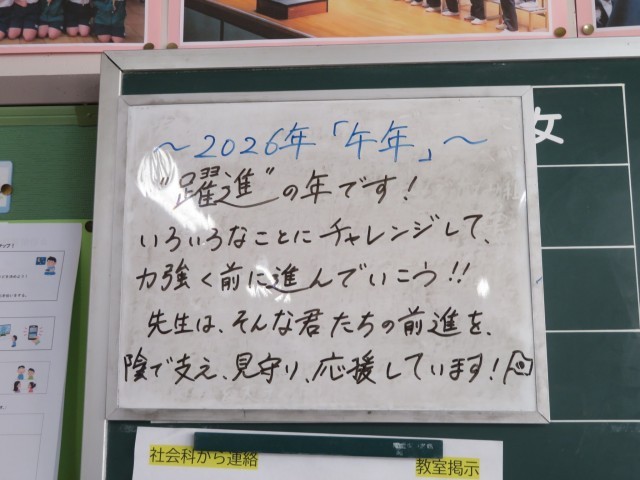 ～2026年「午年」～
"躍進"の年です！
いろいろなことにチャレンジして、
力強く前に進んでいこう!!
先生は、そんな君たちの前進を、
陰で支え、見守り、応援しています！
女
社会科から連絡
教室掲示